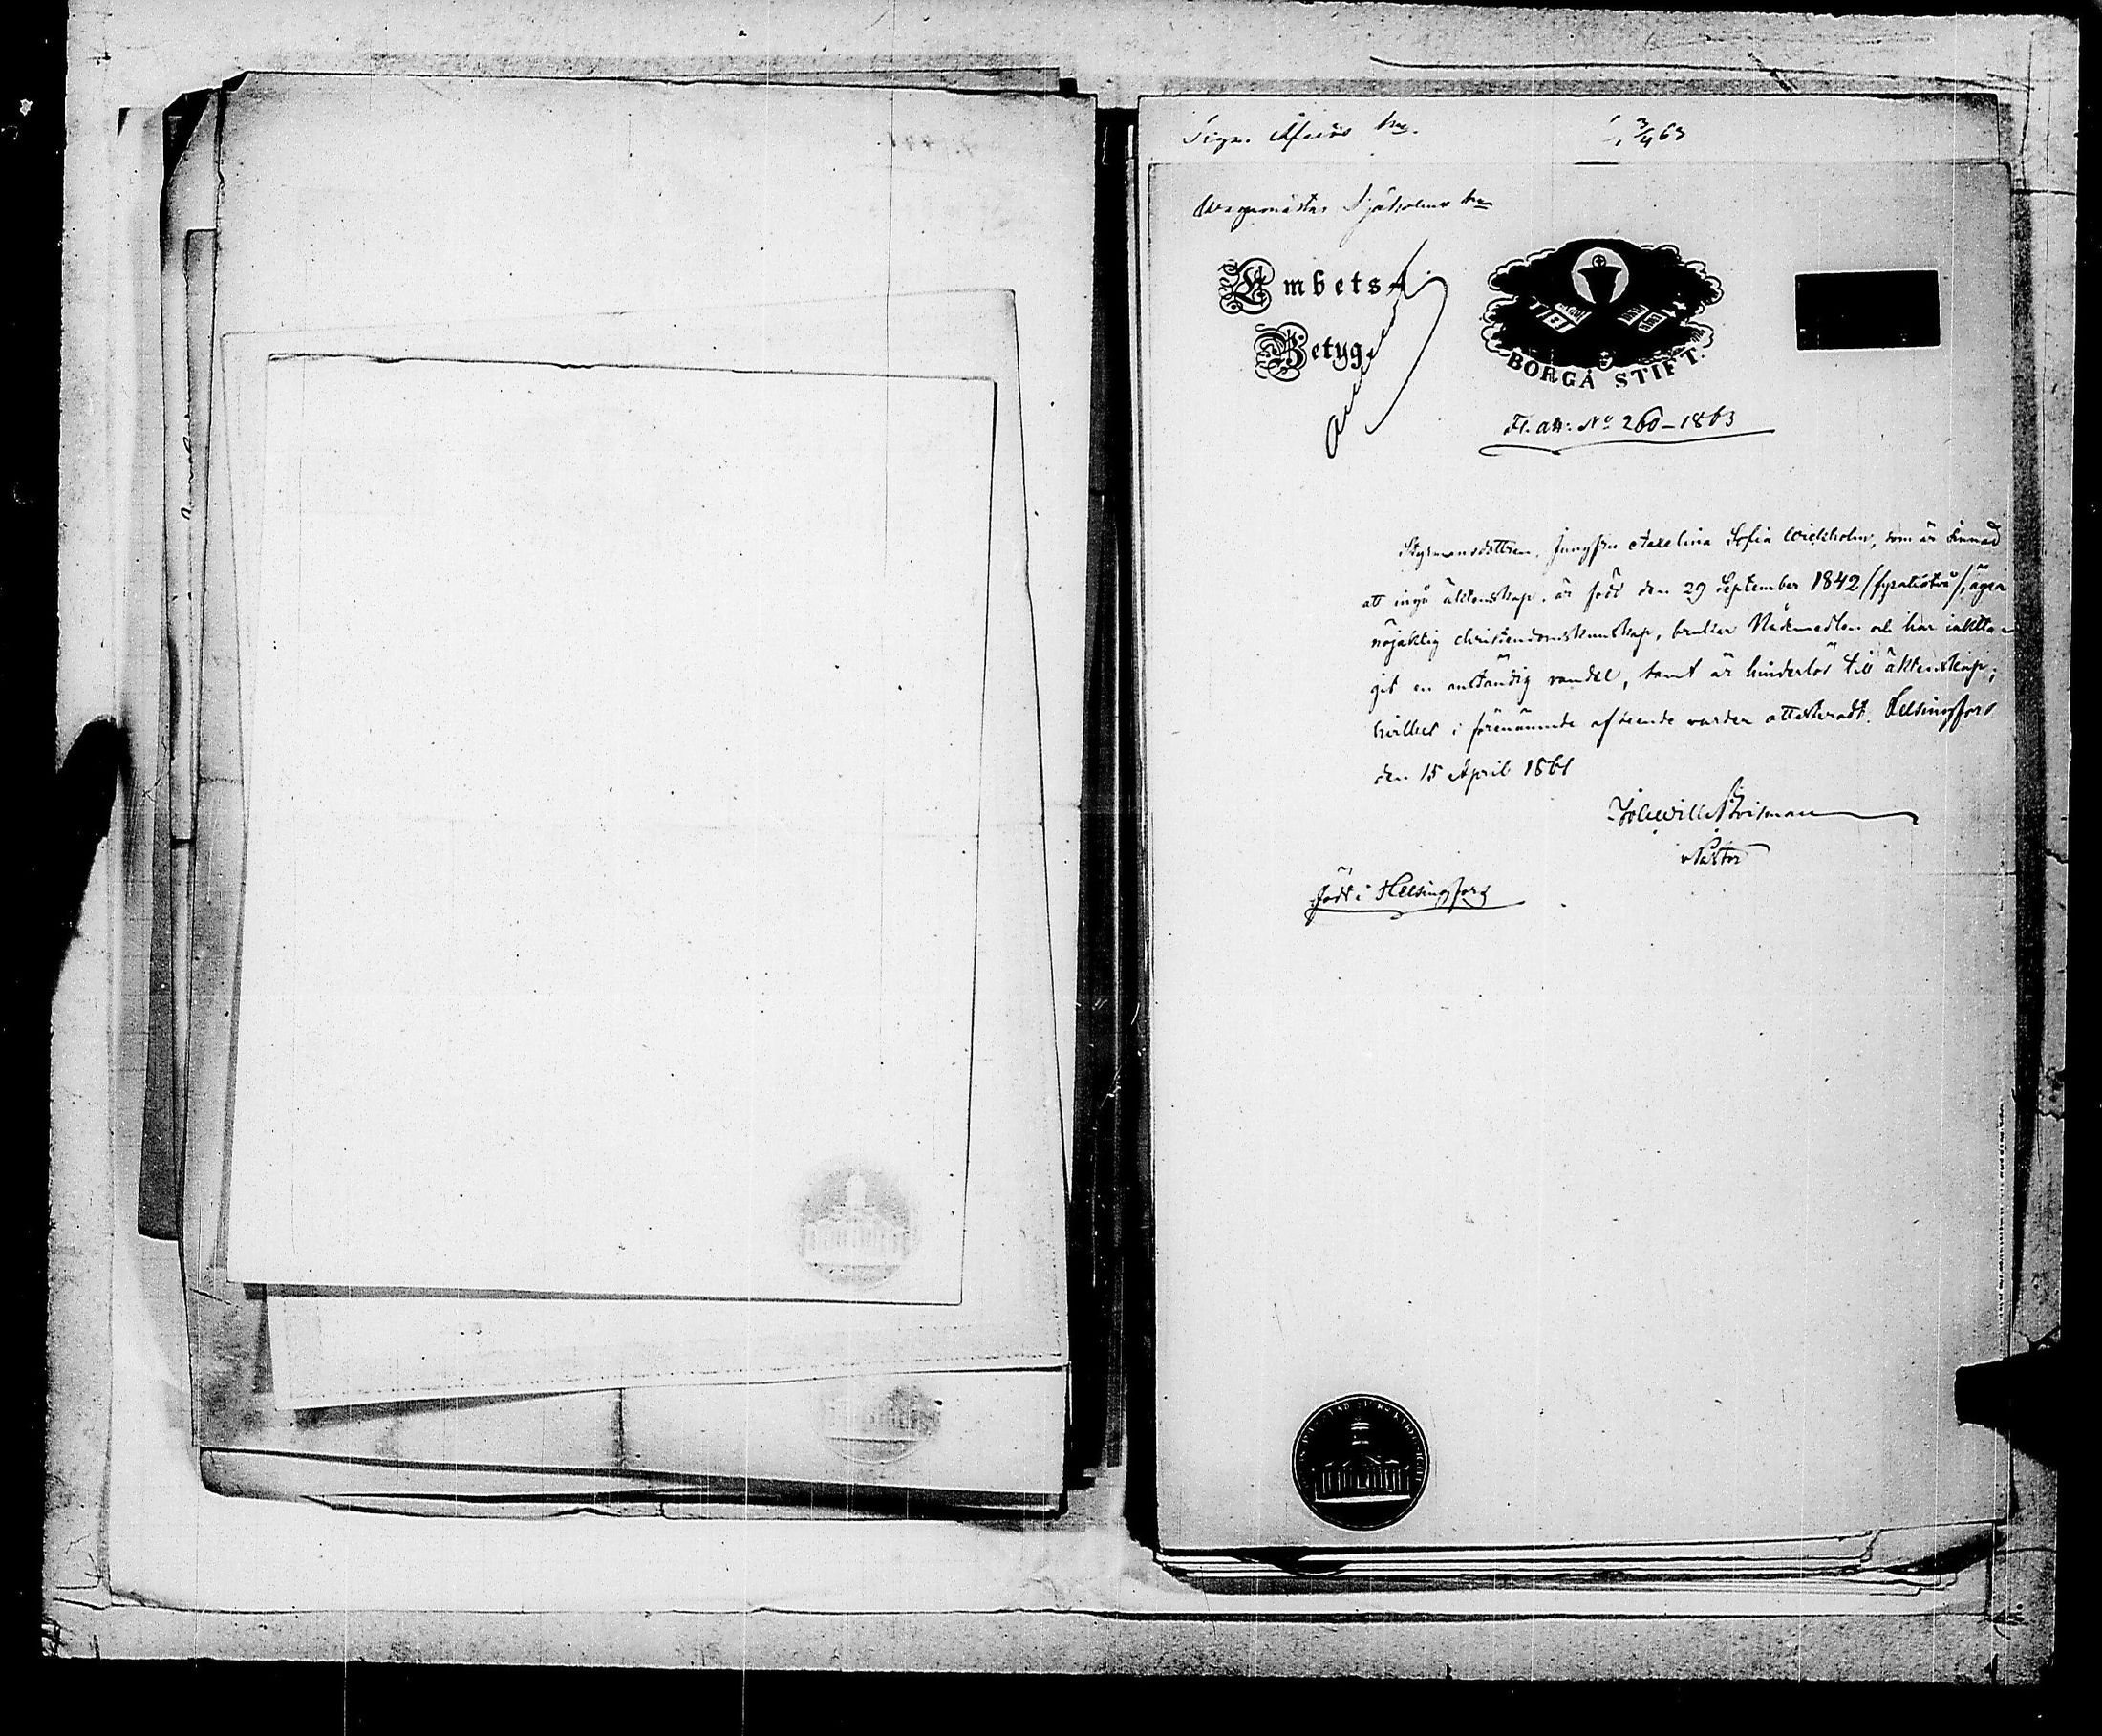 3/4 63
Embets-
Betyg.
BORGÅ STIFT.
Fl. att: No 260-1863
Styrmansdottren, Jungfru Axelina Sofia Wickholm, som är sinnad
att ingå äktenskap, är född den 29 September 1842 /fyratiotvå/, äger
nöjaktig christendomskunskap, brukar Nådemedlen och har iaktta-
git en anständig vandel, samt är hinderlös till äktenskap;
hvilket i förenämnde afseende varder attesteradt. Helsingfors
den 15 April 1861
Pastor
född i Helsingfors